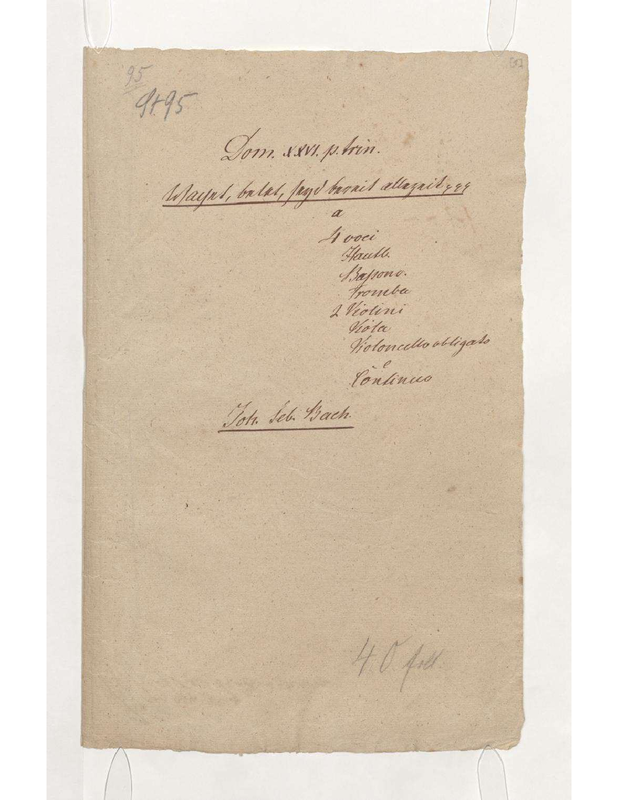 95
St 95
Dom. XXVI. p. trin.
Wachet, betet, seyd bereit allezeit
a
4 voci
Hautb.
Bassono.
Tromba
2 Violini
Viola
Violoncello obligato
e
Continuo
Joh. Seb. Bach
4.